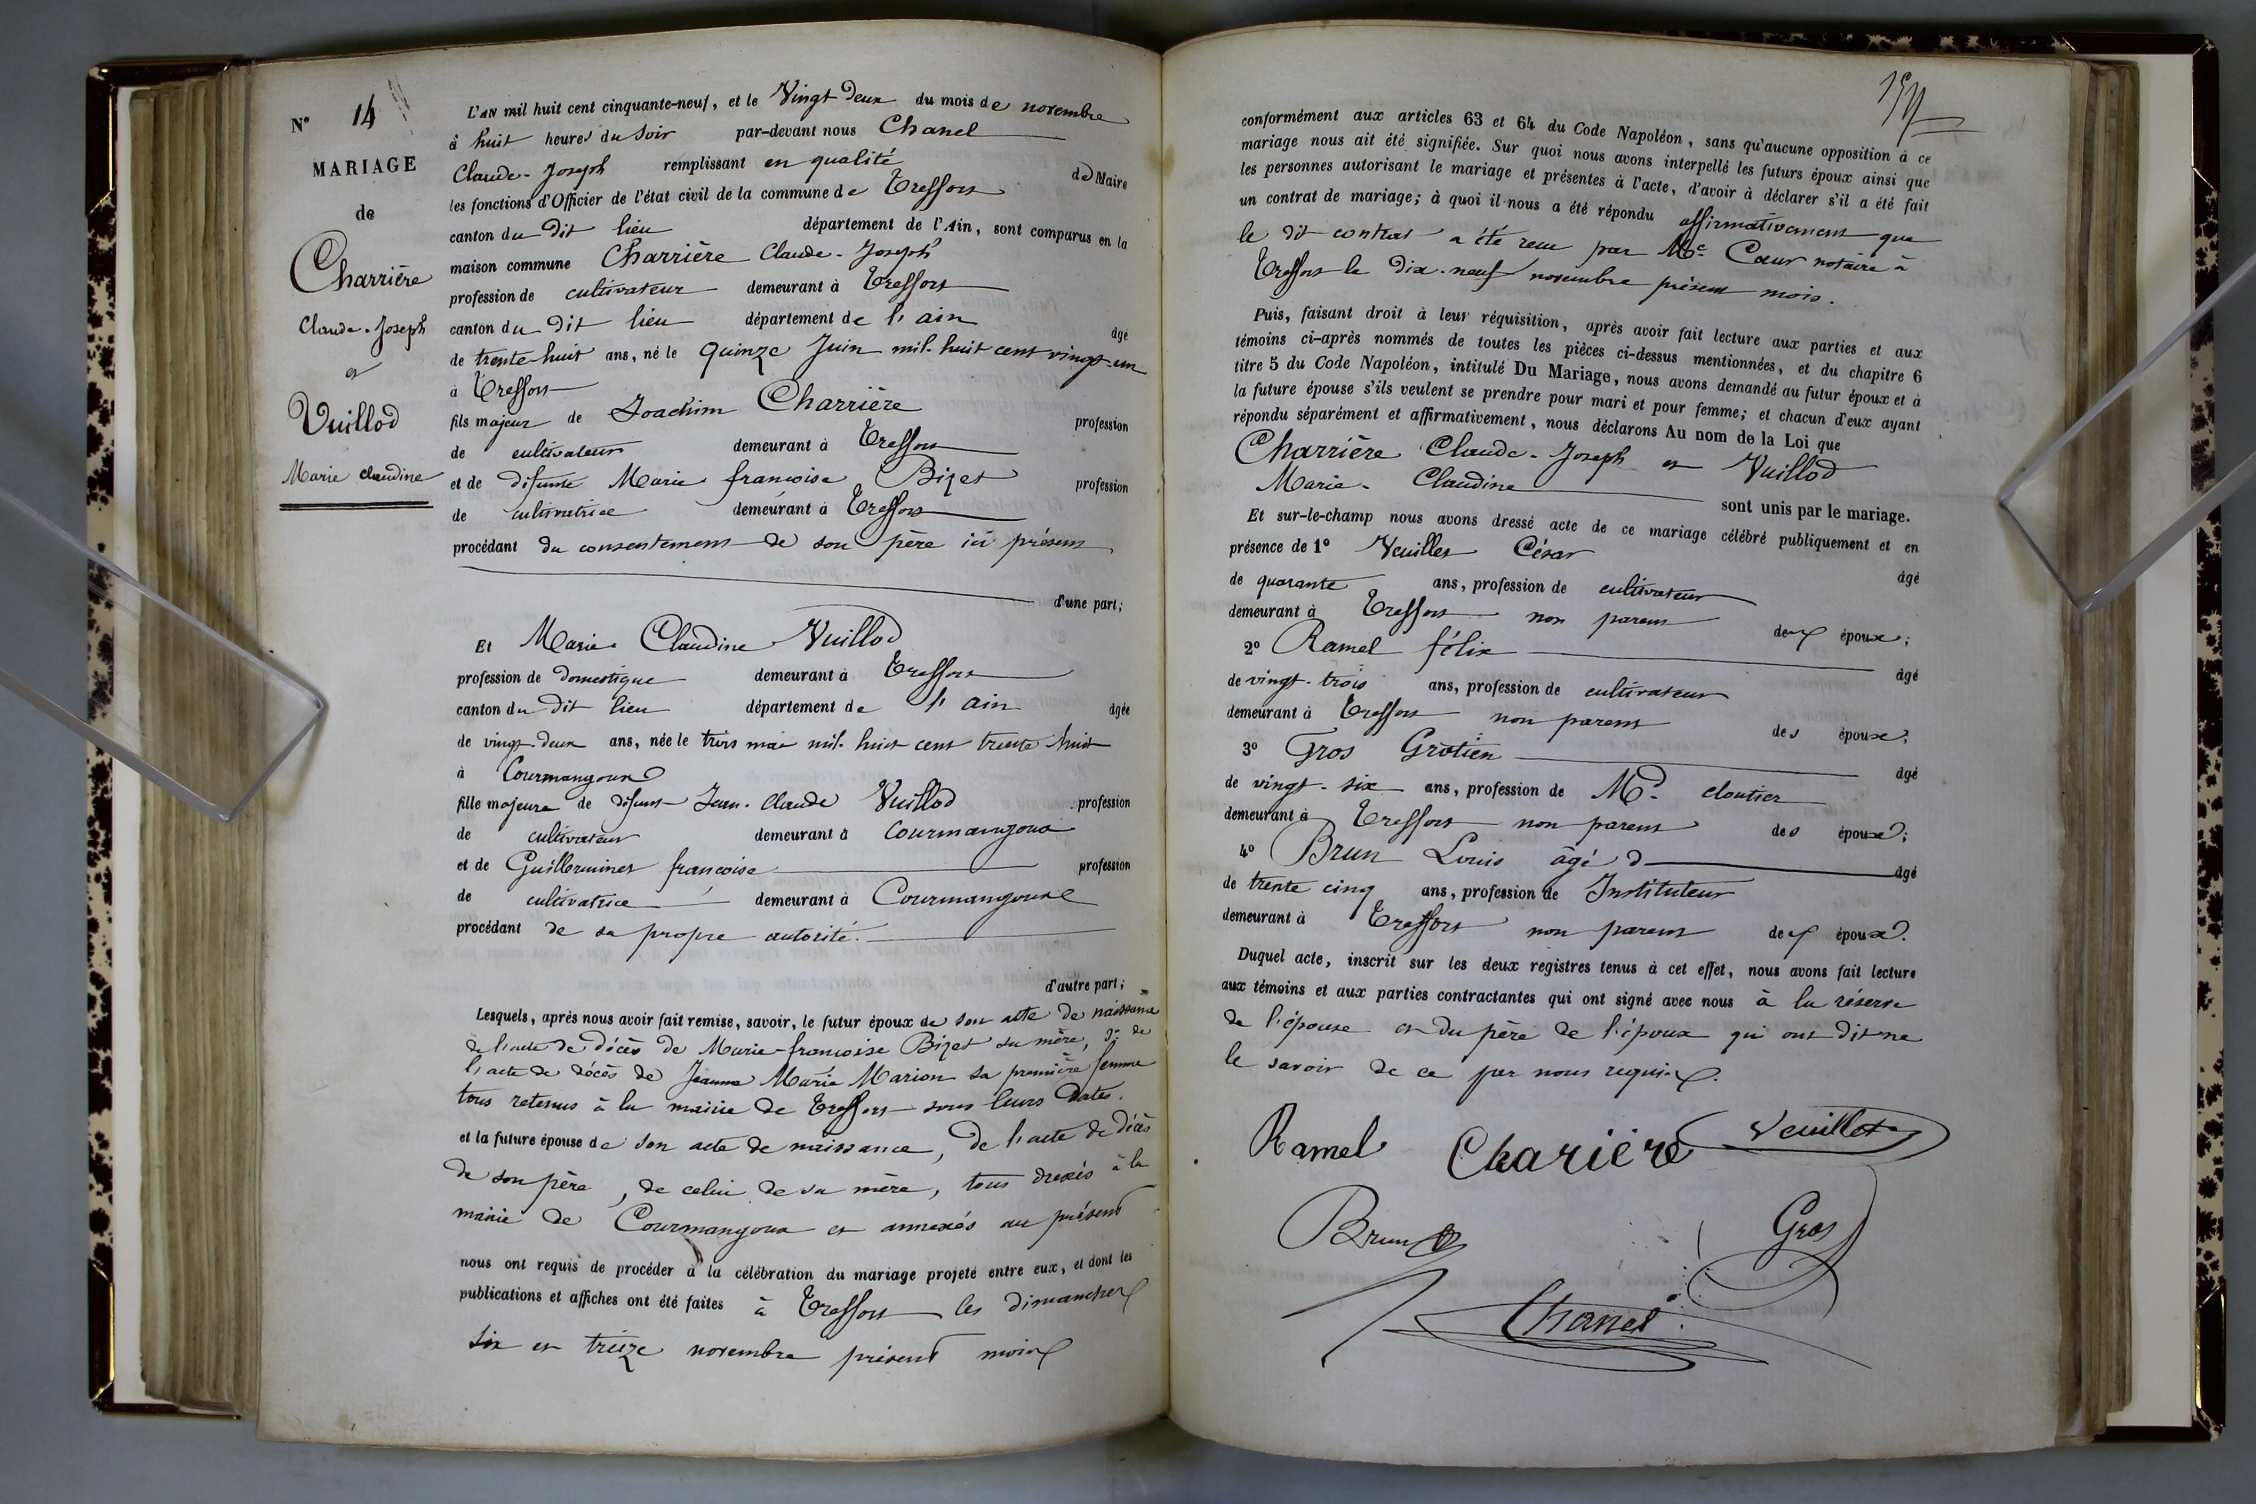 N° 14
MARIAGE
de
Charrière
Claude-Joseph
et
Vuillod
Marie Claudine
L'AN mil huit cent cinquante-neuf, et le Vingt Deux du mois de novembre
à huit heures du Soir par-devant nous Chanel
Claude-Joseph remplissant en qualité de Maire
les fonctions d'Officier de l'état civil de la commune de Treffort
canton du dit lieu département de l'Ain, sont comparus en la
maison commune Charrière Claude-Joseph
profession de cultivateur demeurant à Treffort
canton du dit lieu département de l'ain âgé
de trente-huit ans, né le quinze Juin mil-huit cent vingt-un
à Treffort
fils majeur de Joachim Charrière profession
de cultivateur demeurant à Treffort
et de défunte Marie françoise Bizet profession
de cultivatrice demeurant à Treffort
procédant du consentement de son père ici présent
d'une part;
Et Marie Claudine Vuillod
profession de domestique demeurant à Treffort
canton du dit lieu département de l'ain âgée
de vingt-deux ans, née le trois mai mil-huit cent trente huit
à Courmangoux
fille majeure de défunt Jean-Claude Vuillod profession
de cultivateur demeurant à Courmangoux
et de Guillerminet françoise profession
de cultivatrice demeurant à Courmangoux
procédant de sa propre autorité.
d'autre part;
Lesquels, après nous avoir fait remise, savoir, le futur époux de son acte de naissance
de l'acte de décès de Marie-françoise Bizet sa mère, de
l'acte de décès de Jeanne Marie Marion sa première femme
tous retenus à la mairie de Treffort sous leurs dates.
et la future épouse de son acte de naissance, de l'acte de décès
de son père, de celui de sa mère, tous dressés à la
mairie de Courmangoux et annexés au présent
nous ont requis de procéder à la célébration du mariage projeté entre eux, et dont les
publications et affiches ont été faites à Treffort les dimanches
Six et treize novembre présent mois
conformément aux articles 63 et 64 du Code Napoléon, sans qu'aucune opposition à ce
mariage nous ait été signifiée. Sur quoi nous avons interpellé les futurs époux ainsi que
les personnes autorisant le mariage et présentes à l'acte, d'avoir à déclarer s'il a été fait
un contrat de mariage; à quoi il nous a été répondu affirmativement que
le dit contrat a été reçu par Me Cœur notaire à
Treffort le dix-neuf novembre présent mois.
Puis, faisant droit à leur réquisition, après avoir fait lecture aux parties et aux
témoins ci-après nommés de toutes les pièces ci-dessus mentionnées, et du chapitre 6
titre 5 du Code Napoléon, intitulé Du Mariage, nous avons demandé au futur époux et à
la future épouse s'ils veulent se prendre pour mari et pour femme; et chacun d'eux ayant
répondu séparément et affirmativement, nous déclarons Au nom de la Loi que
Charrière Claude-Joseph et Vuillod
Marie-Claudine sont unis par le mariage.
Et sur-le-champ nous avons dressé acte de ce mariage célébré publiquement et en
présence de 1° Veuillet César âgé
de quarante ans, profession de cultivateur
demeurant à Treffort non parent des époux;
2° Ramel félix âgé
de vingt-trois ans, profession de cultivateur
demeurant à Treffort non parent des époux;
3° Gros Grotien âgé
de vingt-six ans, profession de Md. cloutier
demeurant à Treffort non parent des époux;
4° Brun Louis âgé d âgé
de trente cinq ans, profession de Instituteur
demeurant à Treffort non parent des époux.
Duquel acte, inscrit sur les deux registres tenus à cet effet, nous avons fait lecture
aux témoins et aux parties contractantes qui ont signé avec nous à la réserve
de l'épouse et du père de l'époux qui ont dit ne
le savoir de ce par nous requis.
Ramel Charière Veuillet
Brun Gros
Chanel